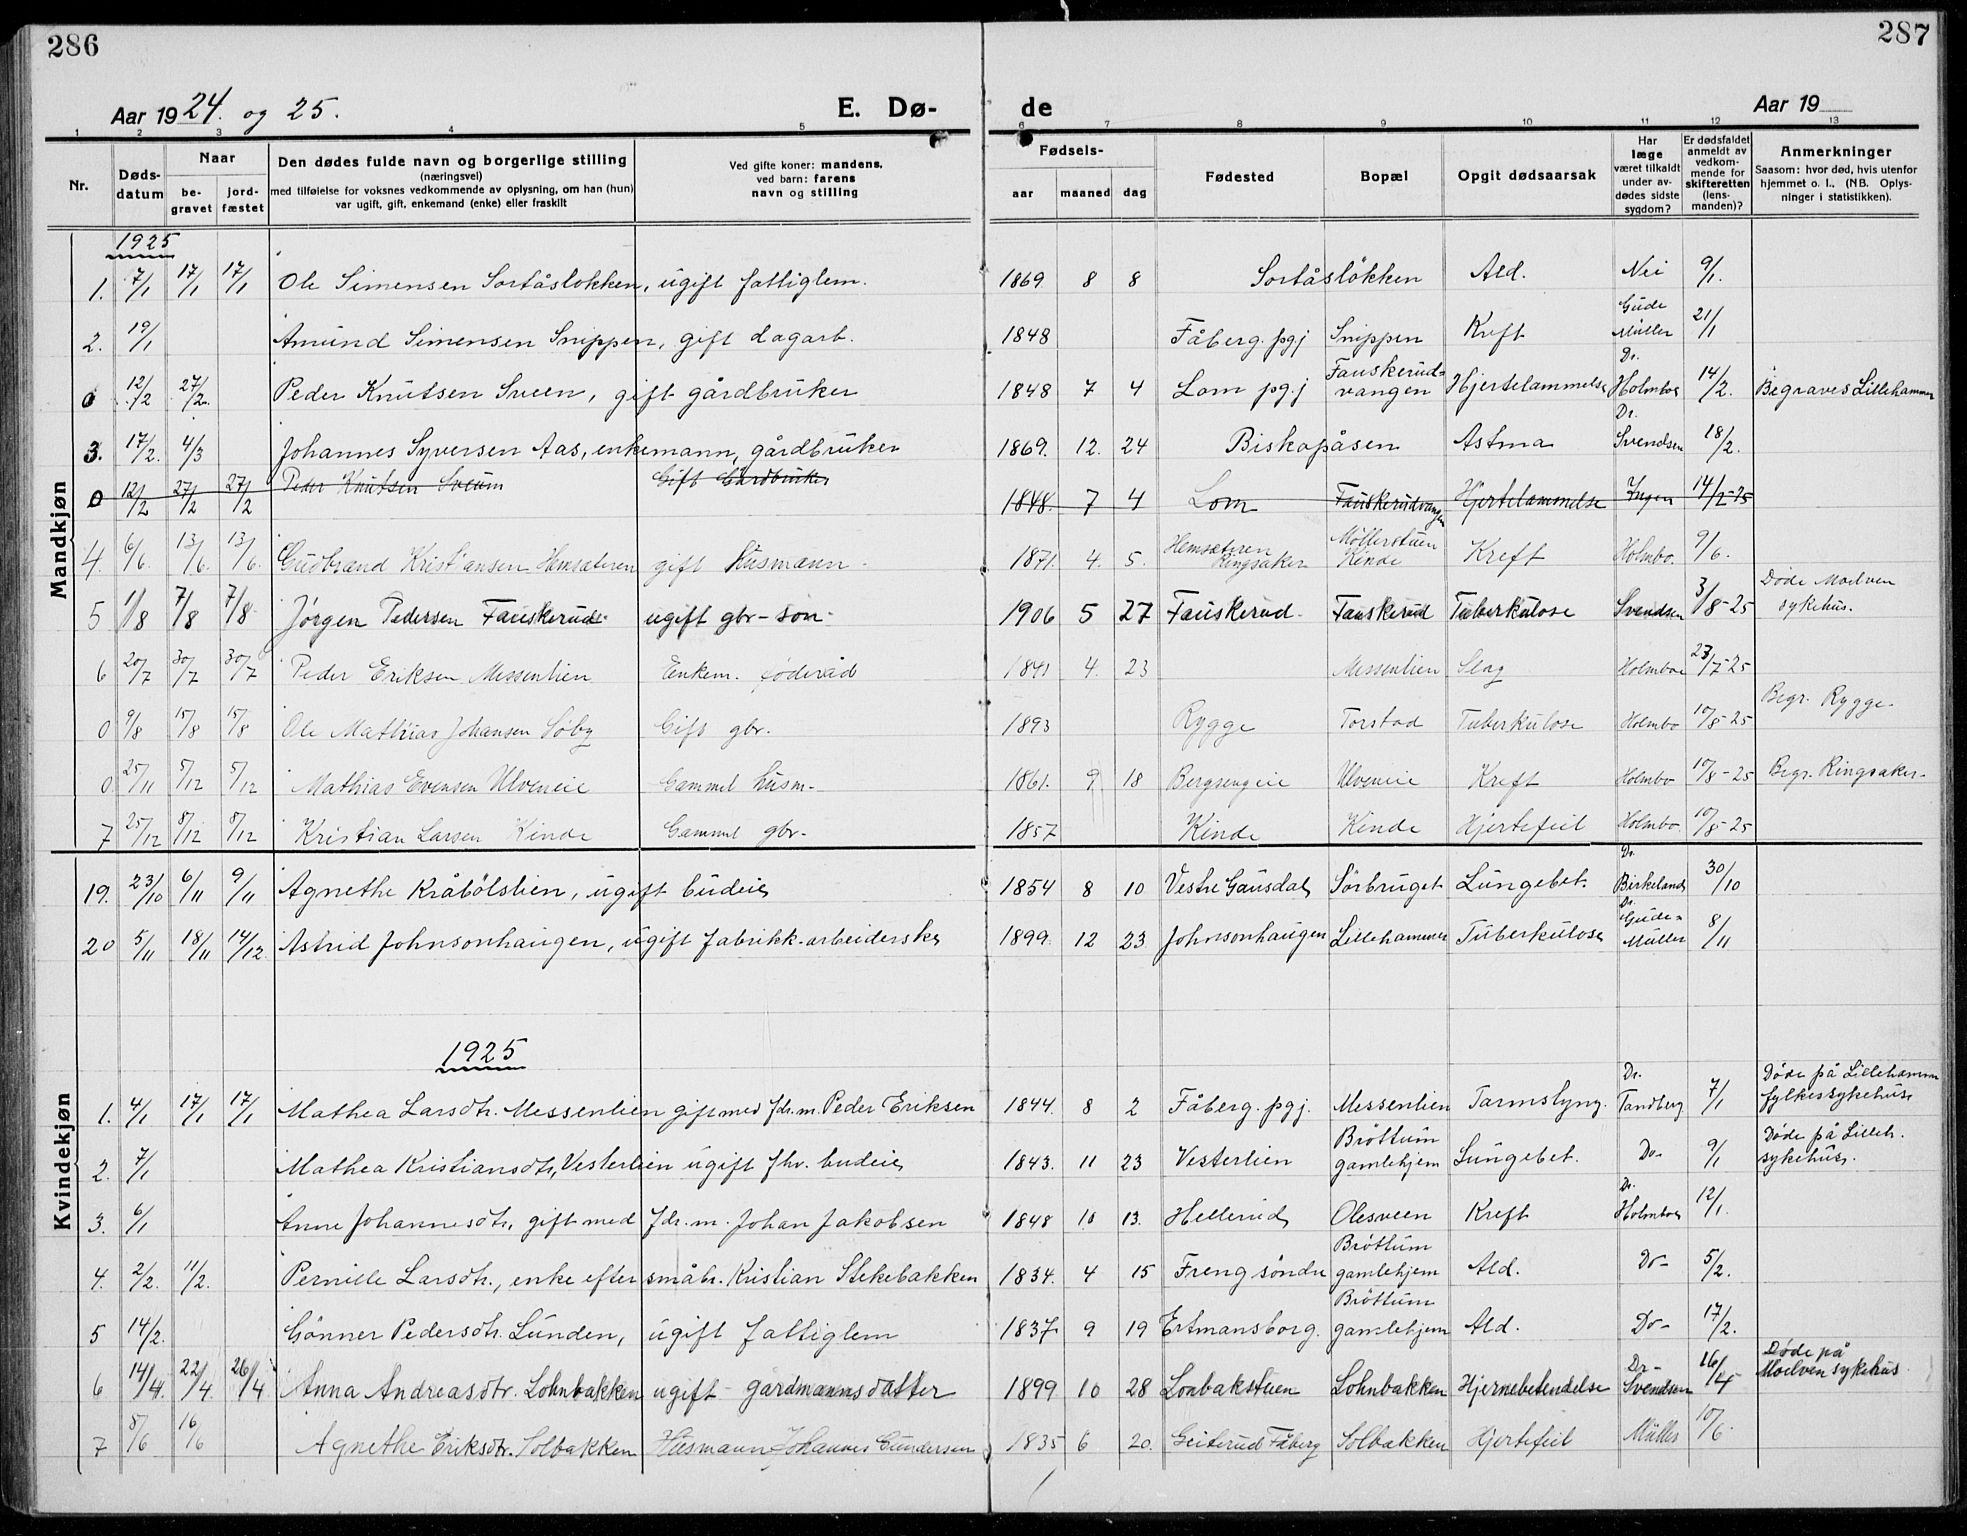 286
287
Aar 1924. og 25.
E. Dø-
de
Aar 19
1 2 3 4 5 6 7 8 9 10 11 12 13
Nr.
Døds-
datum
Naar
be-
gravet
jord-
fæstet
Den dødes fulde navn og borgerlige stilling
(næringsvei)
med tilføielse for voksnes vedkommende av oplysning, om han (hun)
var ugift, gift, enkemand (enke) eller fraskilt
Ved gifte koner: mandens,
ved barn: farens
navn og stilling
Fødsels-
aar
maaned
dag
Fødested
Bopæl
Opgit dødsaarsak
Har
læge
været tilkaldt
under av-
dødes sidste
sygdom?
Er dødsfaldet
anmeldt av
vedkom-
mende for
skifteretten
(lens-
manden)?
Anmerkninger
Saasom: hvor død, hvis utenfor
hjemmet o. l., (NB. Oplys-
ninger i statistikken).
Mandkjøn
1925
1. 7/1 17/1 17/1 Ole Simensen Sortåsløkken, ugift fattiglem. 1869 8 8 Sortåsløkken Ald. Nei 9/1.
2. 19/1 Amund Simensen Snippen, gift dagarb. 1848 Fåberg. pgj Snippen Kreft Gude Müller 21/1
0 12/2 27/2. Peder Knutsen Sveen, gift gårdbruker 1848 7 4 Lom pg.j Fauskerud-vangen Hjertelammelse Dr. Holmboe 14/2. Begraves Lillehammer
3. 17/2. 4/3 Johannes Syversen Aas, enkemann, gårdbruker 1869. 12. 24 Biskopåsen Astma Dr. Svendsen 18/2.
0 12/2 27/2 27/2 Peder Knutsen Sveum Gift Gårdbruker 1848. 7 4 Lom Fauskerudvangen Hjertelammelse Ingen 14/2-25
4. 6/6. 13/6. 13/6. Gudbrand Kristiansen Hemsæteren gift husmann. 1871. 4. 5. Hemsæteren Ringsaker Møllerstuen Kinde Kreft Holmbo. 9/6.
5 1/8 7/8 7/8 Jørgen Pedersen Fauskerud ugift gbr-søn 1906 5 27 Fauskerud. Fauskerud Tuberkulose Svendsen 3/8-25 Døde Moelven sykehus.
6 20/7 30/7 30/7 Peder Eriksen Messenlien Enkem. føderåd 1841 4. 23 Messenlien Slag Holmboe 23/7-25
0 9/8 15/8 15/8 Ole Mathias Johansen Søby Gift gbr. 1893 Rygge Torstad Tuberkulose Holmbo 10/8-25 Begr. Rygge.
0 25/11 5/12 5/12 Mathias Evensen Ulveneie Gammel husm. 1861. 9 18 Bergsengeie Ulveneie Kreft Holmbo 10/8-25 Begr. Ringsaker.
7 25/12 8/12 8/12 Kristian Larsen Kinde Gammel gbr. 1857 Kinde Kinde Hjertefeil Holmbo 10/8-25
Kvindekjøn
19. 23/10 6/11 9/11 Agnethe Kråbølslien, ugift budeie 1854 8 10 Vestre Gausdal Sörbruget Lungebet. Dr. Birkeland 30/10
20 5/11 18/11 14/12. Astrid Johnsonhaugen, ugift fabrikk-arbeiderske 1899. 12 23. Johnsonhaugen Lillehammer Tuberkulose Dr. Gude-Müller 8/11
1925
1. 4/1 17/1 17/1 Mathea Larsdtr. Messenlien gift med fdr.m. Peder Eriksen 1844. 8 2 Fåberg. pgj. Messenlien Tarmslyng. Dr. Tandberg 7/1 Døde på Lillehammer fylkessykehus
2. 7/1 Mathea Kristiansdtr. Vesterlien ugift fhv. budeie 1843. 11 23 Vesterlien Brøttum gamlehjem Lungebet. Do- 9/1 Døde på Lilleh. sykehus.
3. 6/1 Anne Johannesdtr., gift med fdr.m. Johan Jakobsen 1848 10 13. Hellerud Olesveen Kreft Dr. Holmboe 12/1.
4. 2/2. 11/2. Pernille Larsdtr., enke efter småbr. Kristian Stekebakken 1834. 4 15 Freng söndre Brøttum gamlehjem Ald. Do- 5/2.
5 14/2. Gönner Pedersdtr. Lunden, ugift fattiglem 1837. 9 19 Ertmansborg. Brøttum gamlehjem Ald. Do- 17/2.
6 14/4. 22/4. 26/4 Anna Andreasdtr. Lohnbakken ugift gårdmannsdatter 1899 10 28 Lonbakstuen Lohnbakken Hjernebetendelse Dr- Svendsen 16/4 Døde på Moelven sykehus
7 8/6 16/6 Agnethe Eriksdtr. Solbakken Husmann Johannes Gundersen 1835 6 20. Geiterud Fåberg Solbakken Hjertefeil Müller 10/6.